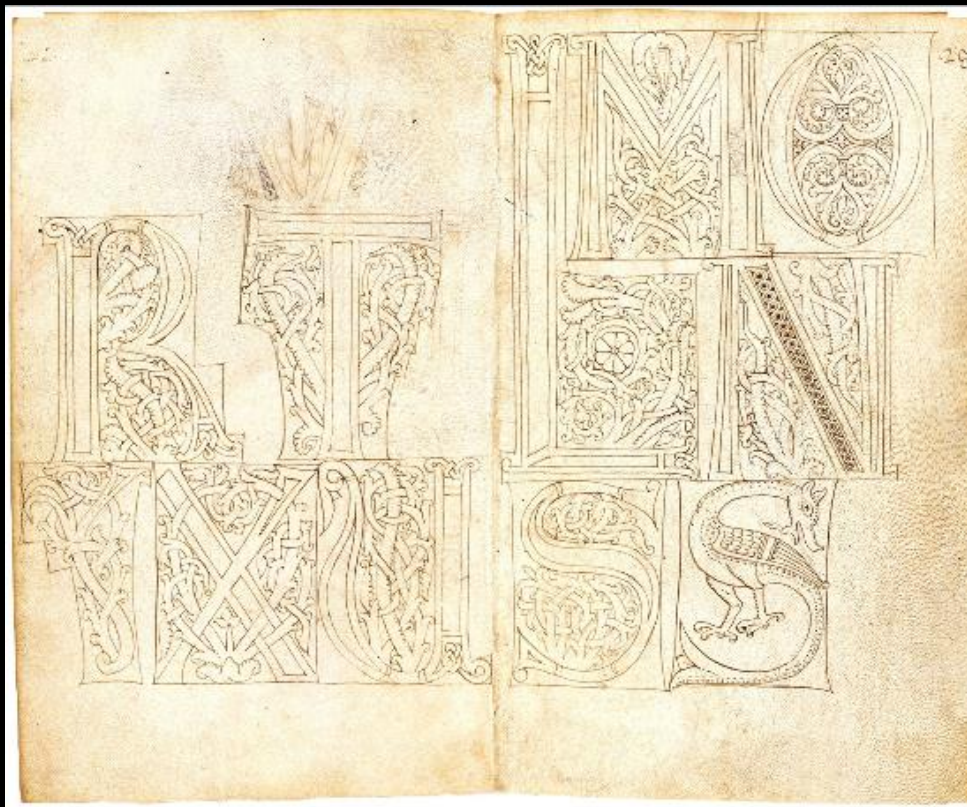 R T
X
L M O
N
S S